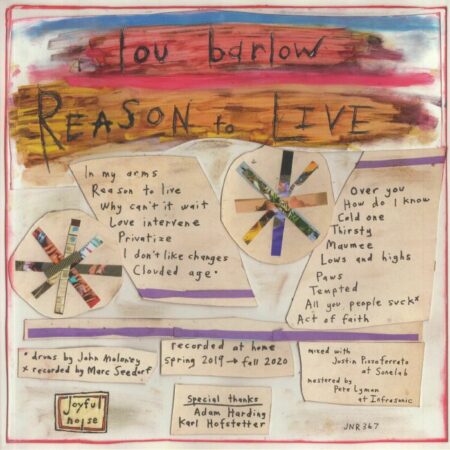 lou barlow
REASON to LIVE
In my arms
Reason to live
Why can't it wait
Love intervene
Privatize
I don't like changes
Clouded age*
Over you
How do I know
Cold one
Thirsty
Maumee
Lows and highs
Paws
Tempted
All you people suckx
Act of faith
* drums by John Moloney
x recorded by Marc Seedorf
recorded at home
spring 2019 → fall 2020
mixed with
Justin Pizzoferrato
at Sonelab
mastered by
Pete Lyman
at Infrasonic
Joyful
noise
Special thanks
Adam Harding
Karl Hofstetter
JNR367